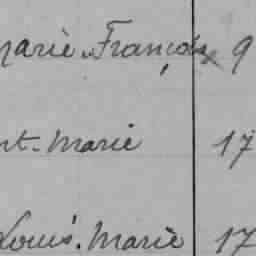 Marie-François 9
nt-Marie 17
Louis-Marie 17